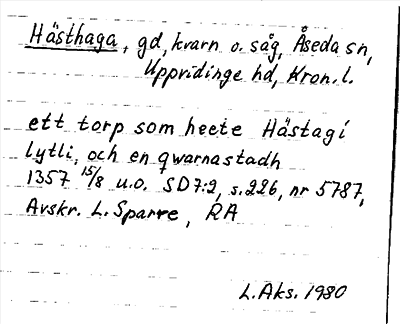 Hästhaga, gd, kvarn o. såg, Åseda sn,
Uppvidinge hd, Kron. l.
ett torp som heete Hästagi
lytli, och en qwarnastadh
1357 15/8 u.o. SD 7:2, s. 226, nr 5787,
Avskr. L. Sparre, RA
L. Aks. 1980